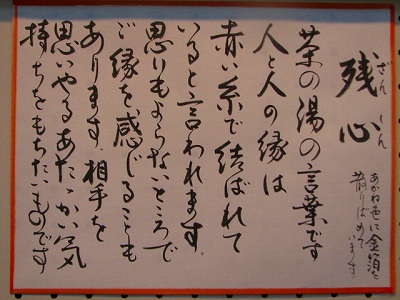 残心
ざんしん
あかね色に金箔を
散りばめて
います
茶の湯の言葉です
人と人の縁は
赤い糸で結ばれて
いると言われます。
思りもよらないところで
ご縁を感じることも
あります。相手を
思いやるあたゝかい気
持ちをもちたいものです